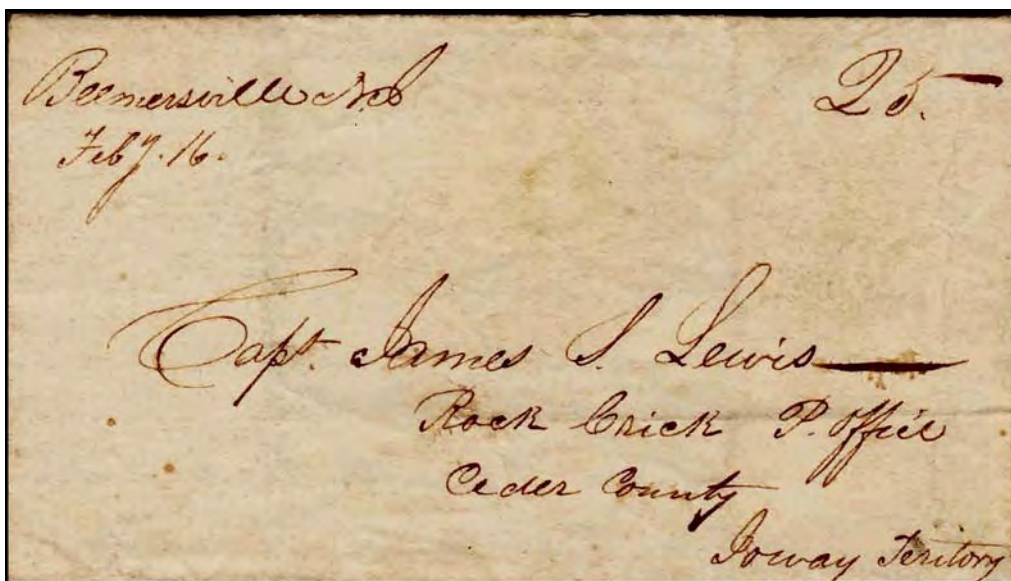 Beemersville N.J
25.
Feby. 16.
Capt. James S. Lewis
Rock Crick P. Offiee
Ceder County
Ioway Teritory